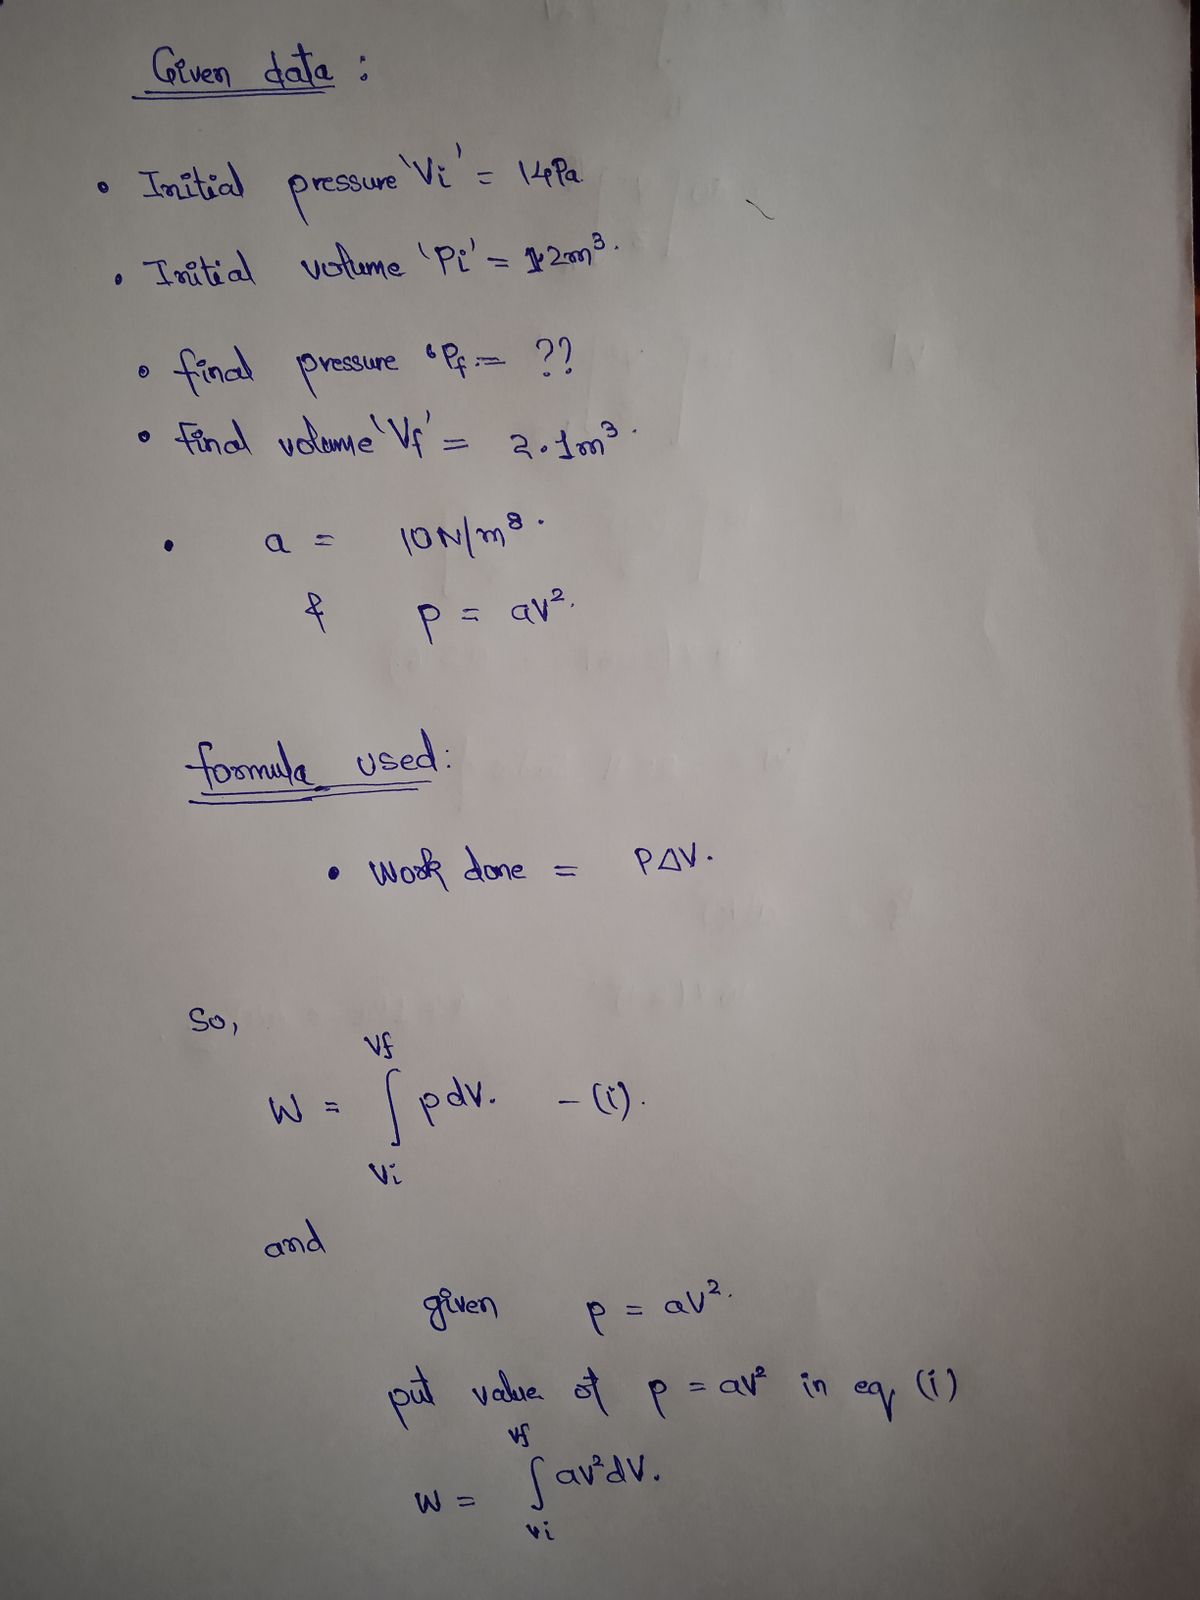 Given data :
• Initial pressure 'Vi' = 14Pa
• Initial volume 'Pi' = 1.2m³.
• final pressure 'Pf = ??
• final volume 'Vf' = 2.1m³.
• a = 10N/m⁸.
& p = aV².
formula used:
• Work done = PΔV.
So,
W = ∫ Vi Vf pdV. - (i).
and
given p = aV².
put value of p = aV² in eq (i)
W = ∫ Vi Vf aV²dV.